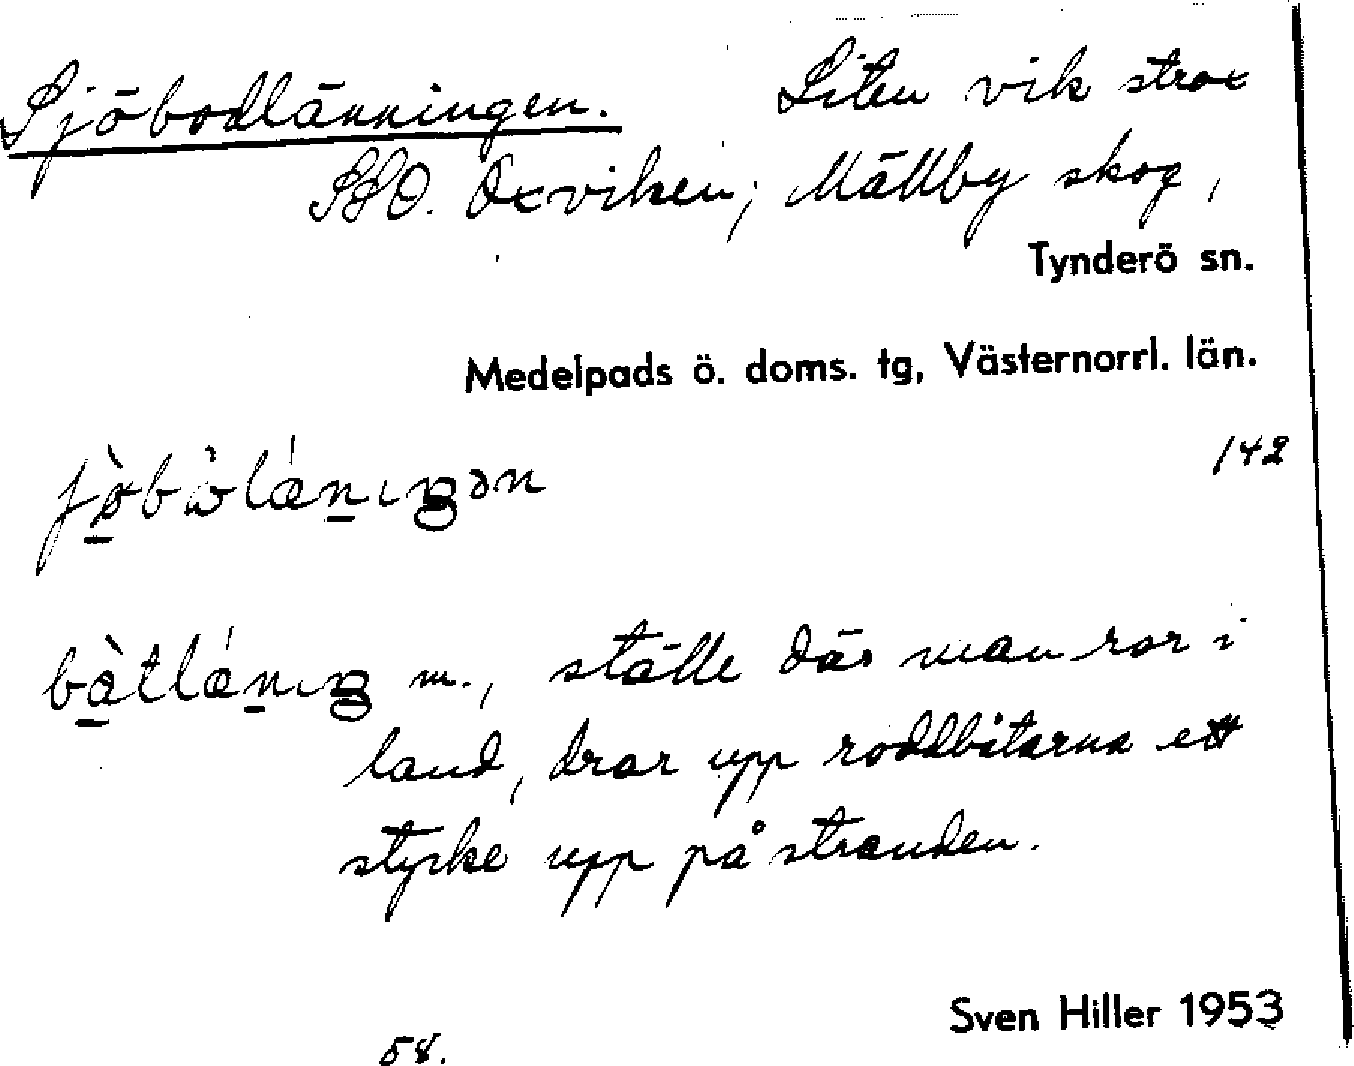 Sjöbodlänningen. Liten vik strax
SSO. Oxviken; Mällby skog,
Tynderö sn.
Medelpads ö. doms. tg, Västernorrl. län.
142
bàtlánıŋ m., ställe där man ror i
land, drar upp roddbåtarna ett
stycke upp på stranden.
Sven Hiller 1953
58.